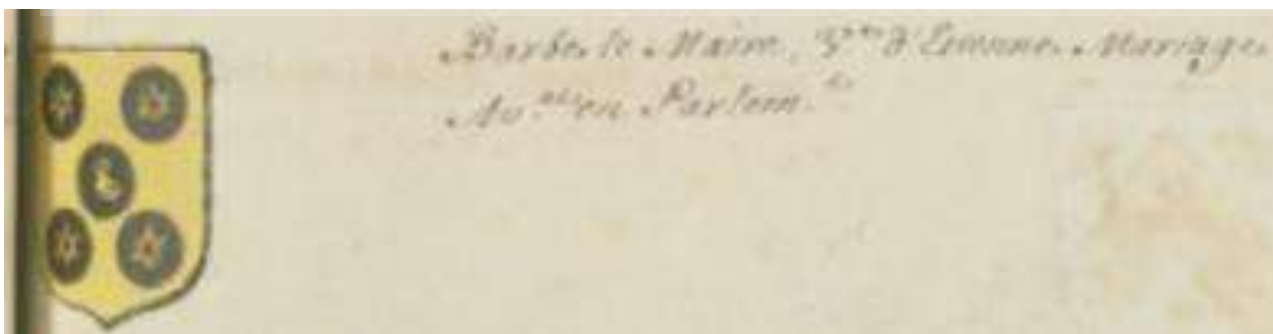 Barbe le Maire, F.ᵐᵉ d'Etienne Mariage
Av.ᵃᵗ en Parlem.ᵗ